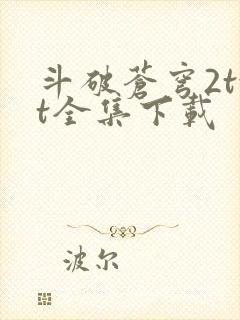 斗破蒼穹2t
t全集下載
波尔